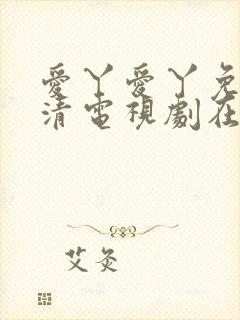 愛丫愛丫免
清電視劇在
艾灸